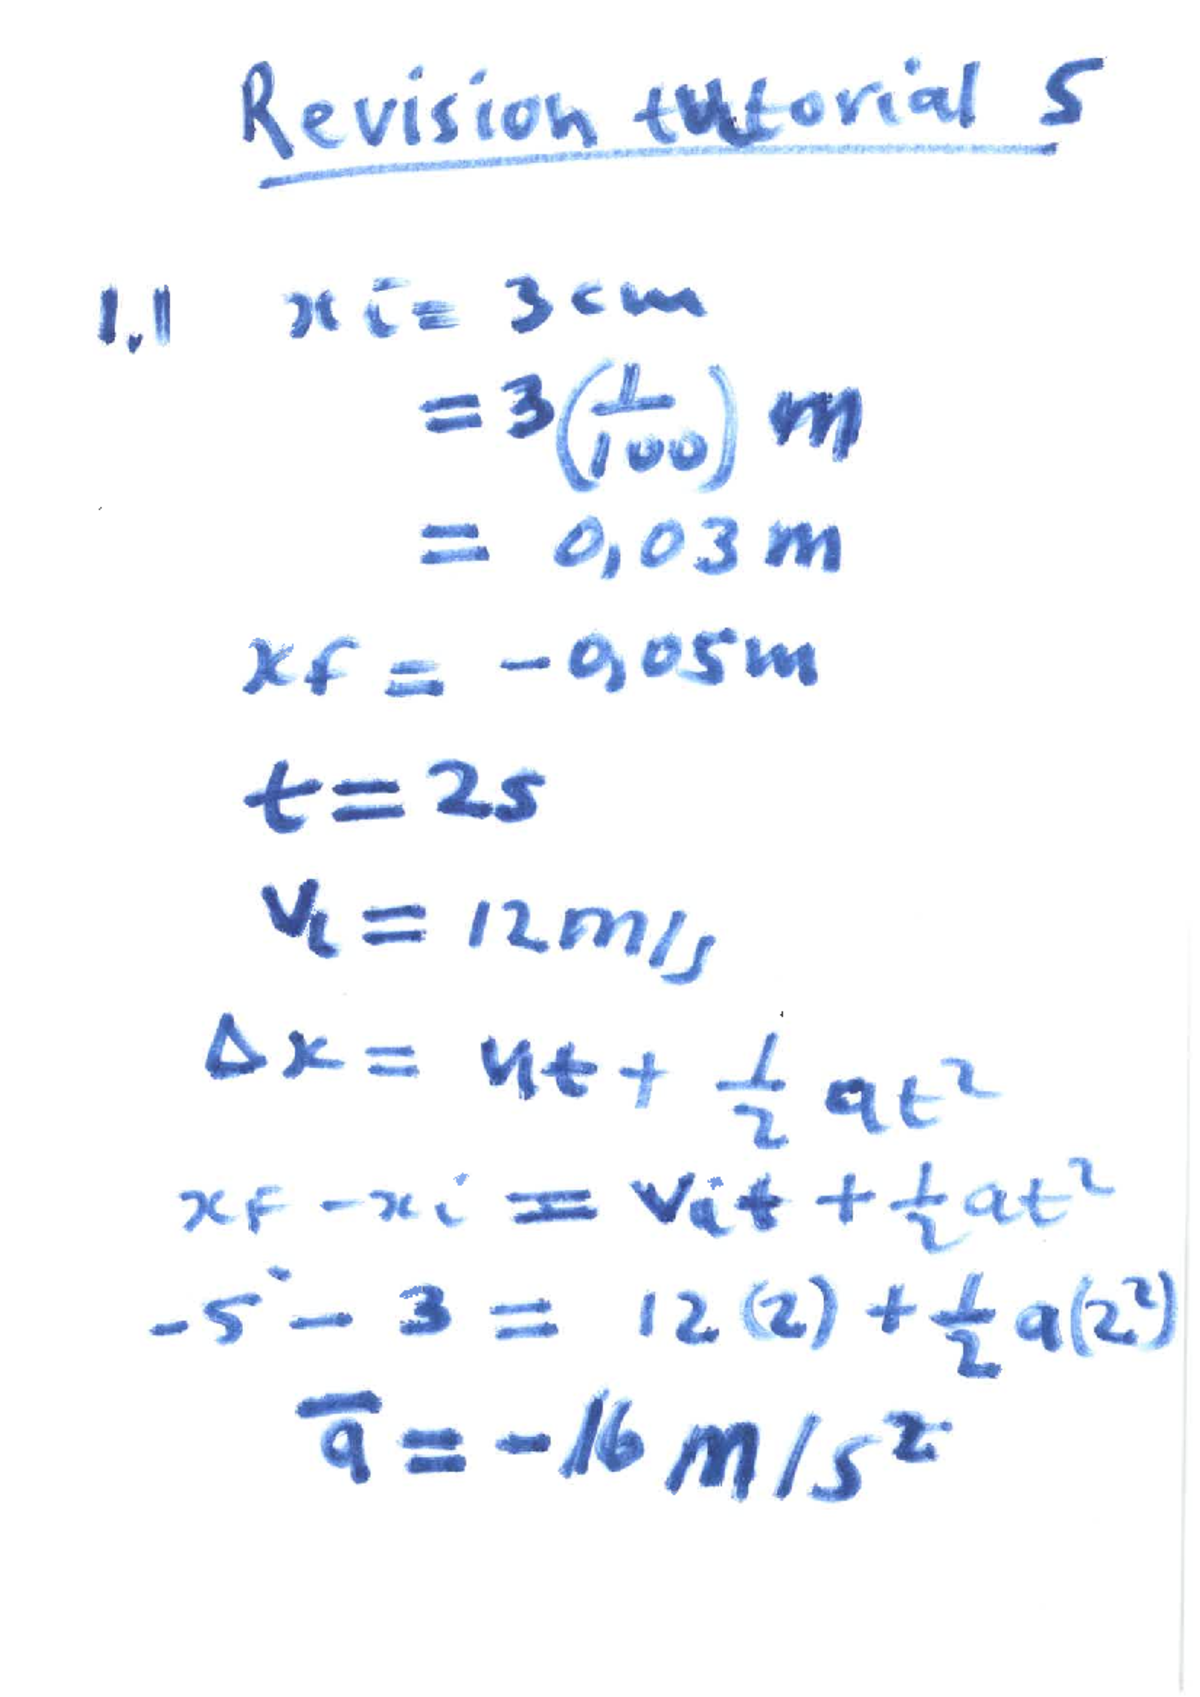 Revision tutorial 5
1.1 xi = 3 cm
= 3(1/100) m
= 0,03 m
xf = -0,05m
t = 2s
Vi = 12m/s
Δx = ut + 1/2 at²
xf - xi = Vit + 1/2 at²
-5 - 3 = 12(2) + 1/2 a(2²)
a̅ = -16 m/s²